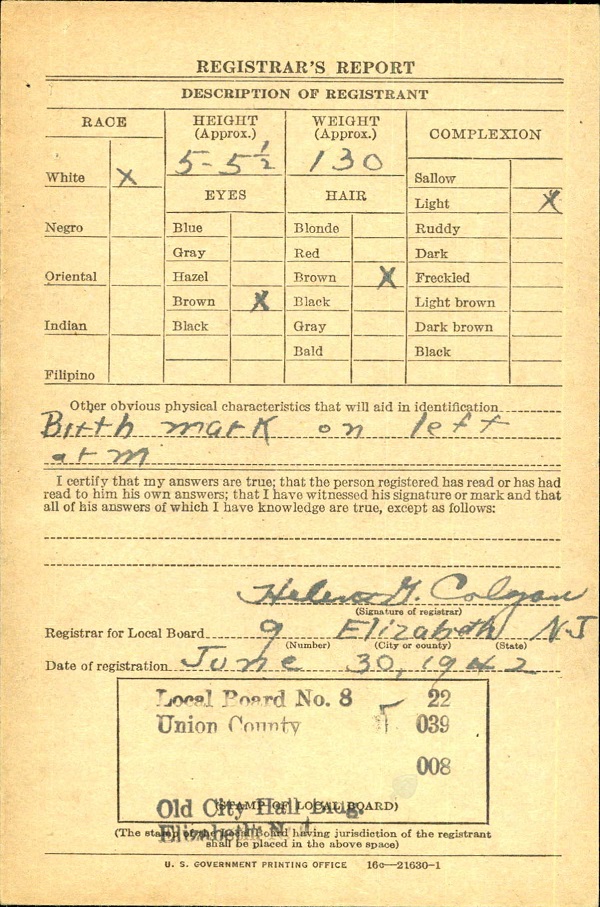 REGISTRAR'S REPORT
DESCRIPTION OF REGISTRANT
RACE
HEIGHT
(Approx.)
WEIGHT
(Approx.)
COMPLEXION
5-5½
130
White X
Sallow
EYES
HAIR
Light X
Negro
Blue
Blonde
Ruddy
Gray
Red
Dark
Oriental
Hazel
Brown X
Freckled
Brown X
Black
Light brown
Indian
Black
Gray
Dark brown
Bald
Black
Filipino
Other obvious physical characteristics that will aid in identification
Birth mark on left
arm
I certify that my answers are true; that the person registered has read or has had
read to him his own answers; that I have witnessed his signature or mark and that
all of his answers of which I have knowledge are true, except as follows:
Helen G. Colgan
(Signature of registrar)
Registrar for Local Board 9 Elizabeth N-J
(Number) (City or county) (State)
Date of registration June 30, 1942
Local Board No. 8 22
Union County 039
008
Old City Hall Bldg.
(STAMP OF LOCAL BOARD)
Elizabeth N.
(The stamp of the Local Board having jurisdiction of the registrant
shall be placed in the above space)
U. S. GOVERNMENT PRINTING OFFICE 16c—21630-1